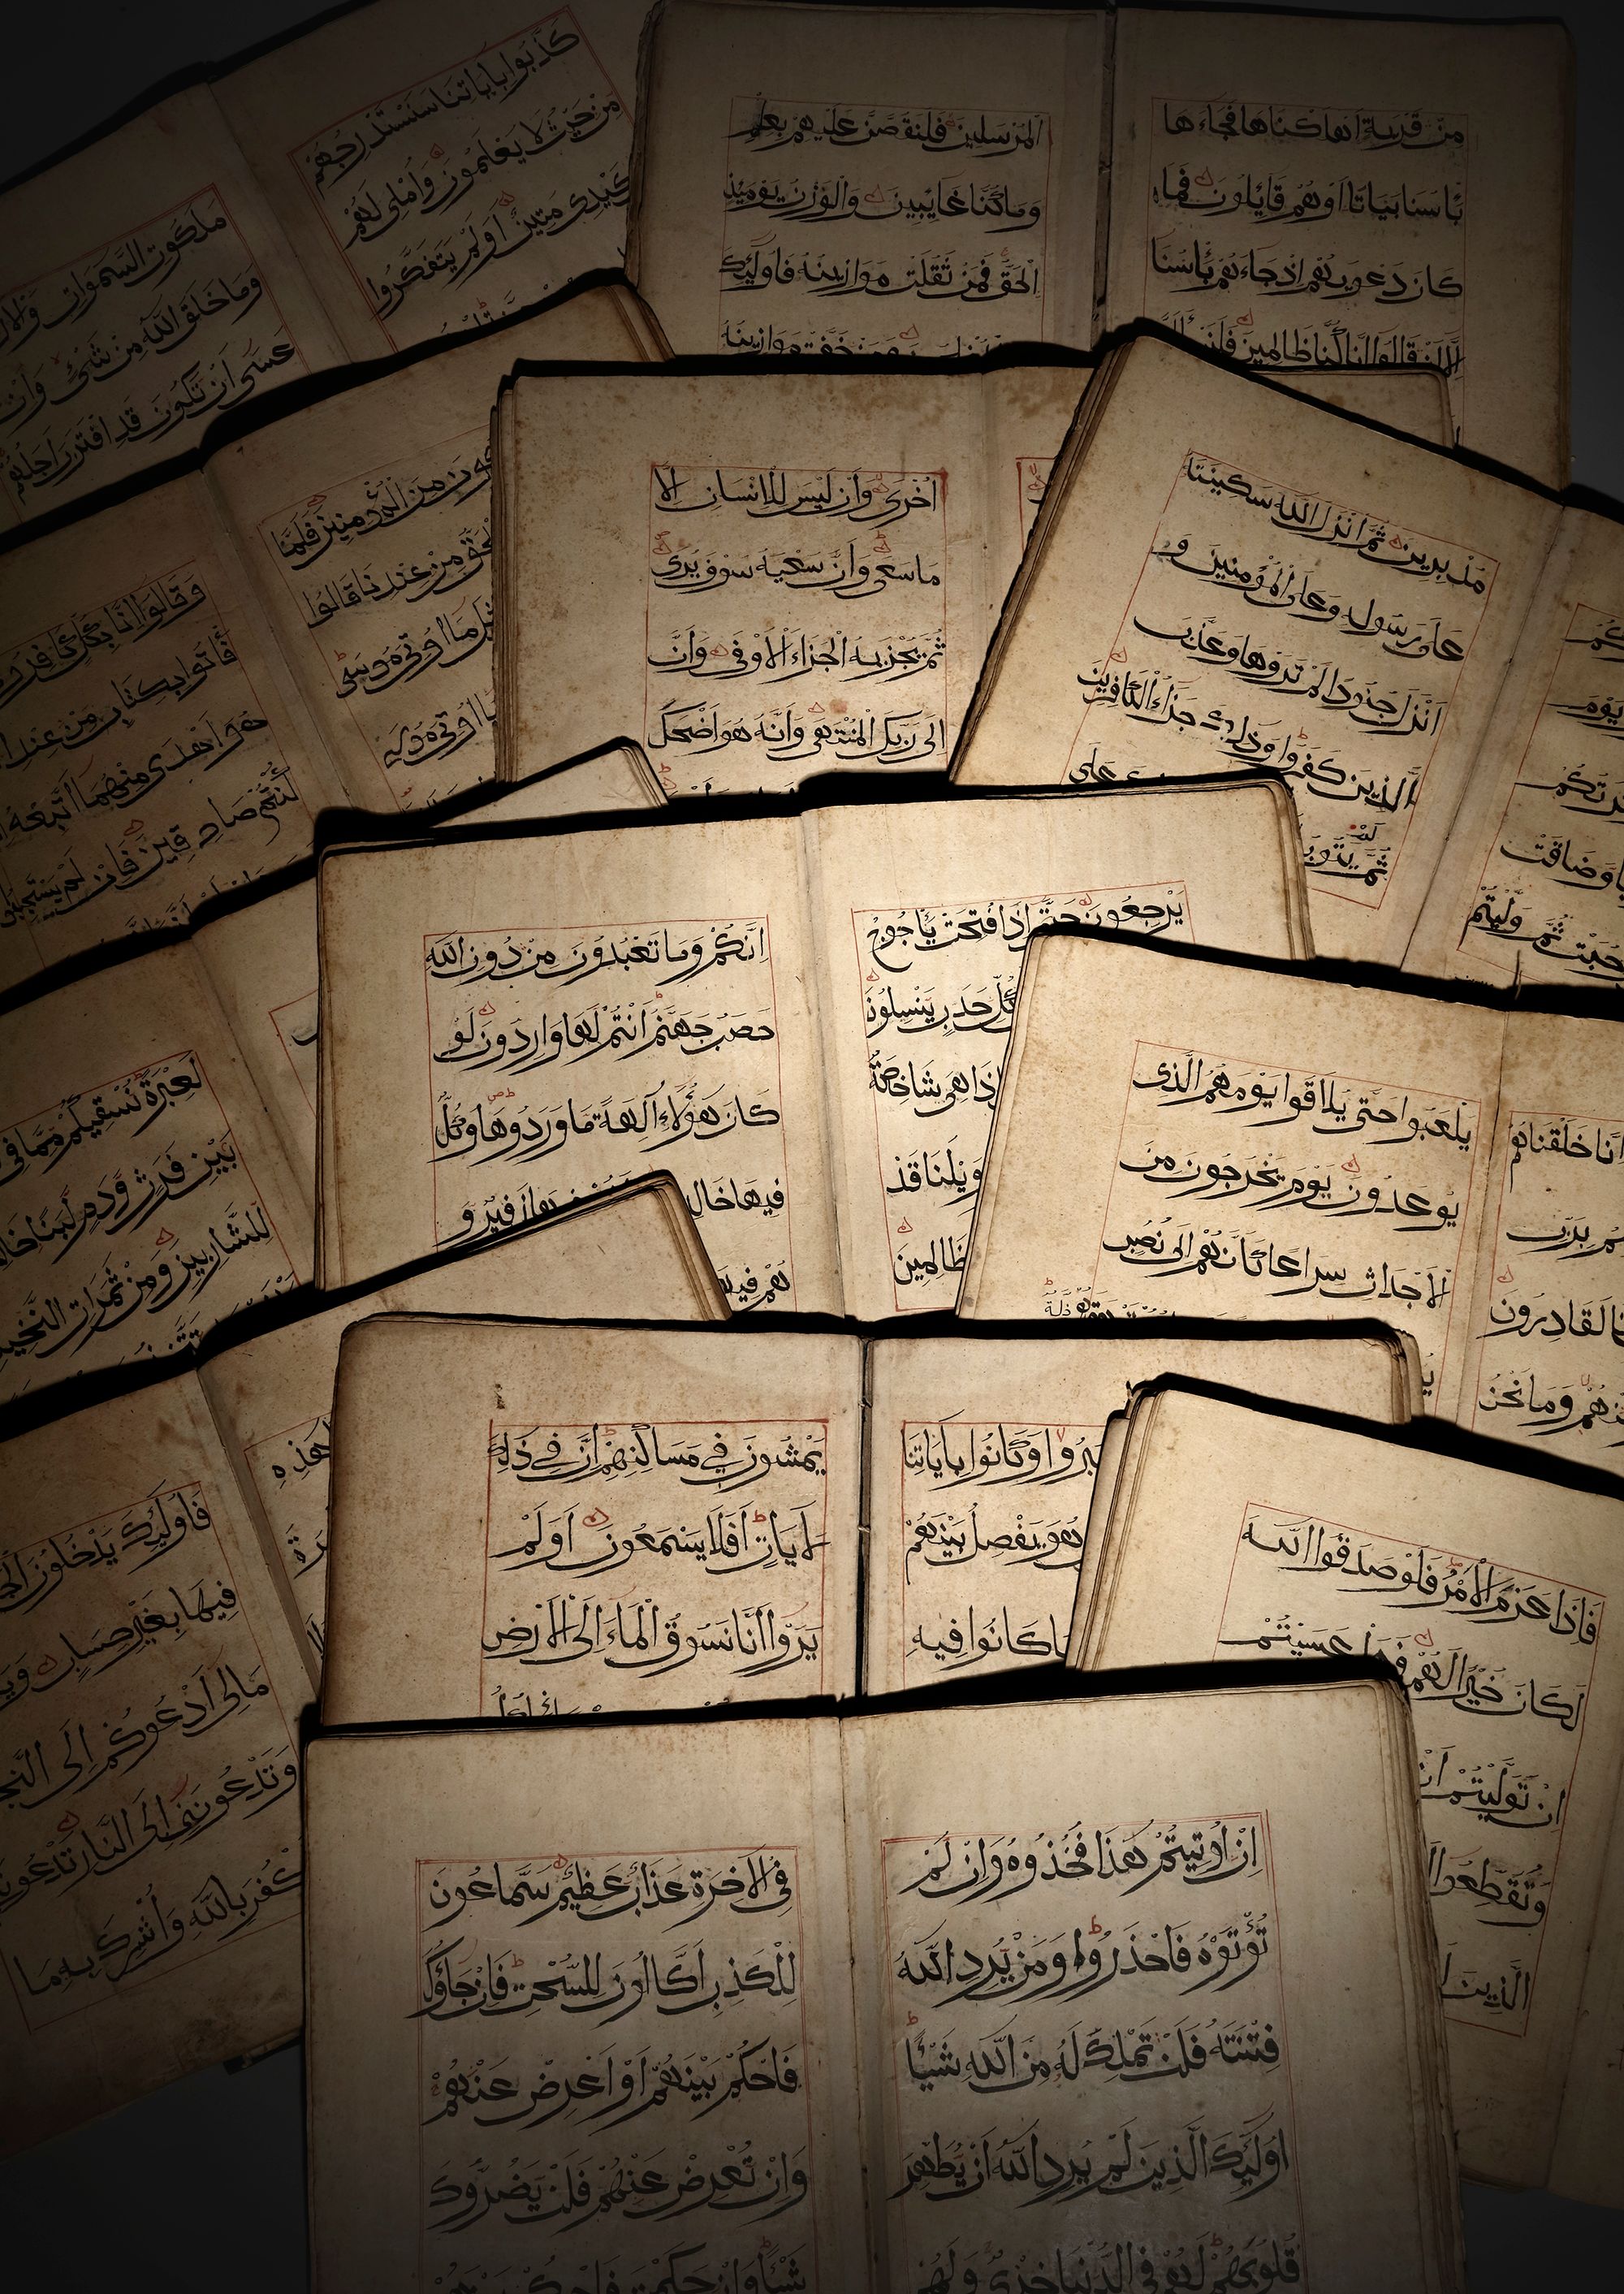 كذبوا باياتنا سنستدرجهم
من حيث لا يعلمون واملى لهم
كيدى متين اولم يتفكروا
ملكوت السموات والار
وما خلق الله من شئ وان
عسى ان تكون قد اقترب اجلهم
من قرية اهلكناها فجاءها
باسنا بياتا اوهم قايلون فما
كان دعويهم اذ جاءهم باسنا
الا ان قالوا انا كنا ظالمين فلنسئلن
المرسلين فلنقصن عليهم بعلم
وما كنا غايبين والوزن يوميذ
الحق فمن ثقلت موازينه فاوليك
خفت موازينه
من المؤمنين فلما
الحق من عندنا قالوا
مثل ما اوتى موسى
بما اوتى موسى
وقالوا انا بكل كافرون
فأتوا بكتاب من عند
هو اهدى منهما اتبعه
كنتم صادقين فان لم يستجيبوا
اخرى وان ليس للانسان الا
ما سعى وان سعيه سوف يرى
ثم يجزيه الجزاء الاوفى وان
الى ربك المنتهى وانه هو اضحك
مدبرين ثم انزل الله سكينته
على رسوله وعلى المؤمنين و
انزل جنودا لم تروها وعذب
الذين كفروا وذلك جزاء الكافرين
ثم يتوب
على
وضاقت
رحبت ثم وليتم
يرجعون حتى اذا فتحت ياجوج
كل حدب ينسلون
اذا هى شاخصة
ويلنا قد
ظالمين
انكم وما تعبدون من دون الله
حصب جهنم انتم لها واردون لو
كان هؤلاء آلهة ما وردوها وكل
فيها خالدون لهم فيها زفير و
هم فيها
انا خلقناهم
لقادرون
منهم وما نحن
يلعبوا حتى يلاقوا يومهم الذى
يوعدون يوم يخرجون من
الاجداث سراعا كانهم الى نصب
ذلة
لعبرة نسقيكم مما فى
بين فرث ودم لبنا خالصا
للشاربين ومن ثمرات النخيل
صبروا وكانوا باياتنا
هو يفصل بينهم
كانوا فيه
يمشون في مساكنهم ان في ذلك
لايات افلا يسمعون اولم
يروا انا نسوق الماء الى الارض
هذه
فاوليك يدخلون الجنة
فيها بغير حساب ويا
مالى ادعوكم الى النجاة
وتدعوننى الى النار تدعوننى
لاكفر بالله واشرك به ما
فاذا عزم الامر فلو صدقوا الله
لكان خيرا لهم فهل عسيتم
ان توليتم ان
وتقطعوا
الذين
ان اوتيتم هذا فخذوه وان لم
تؤتوه فاحذروا ومن يرد الله
فتنته فلن تملك له من الله شيئا
اوليك الذين لم يرد الله ان يطهر
قلوبهم لهم فى الدنيا خزى ولهم
فى الاخرة عذاب عظيم سماعون
للكذب اكالون للسحت فان جاؤك
فاحكم بينهم او اعرض عنهم
وان تعرض عنهم فلن يضروك
شيئا وان حكمت فاحكم بينهم